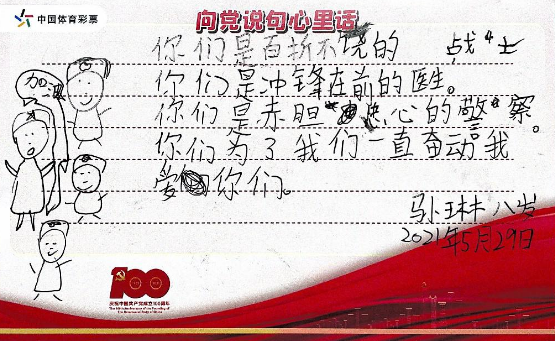 中国体育彩票
向党说句心里话
你们是百折不饶的 战士
你们是冲锋在前的医生。
加油
你们是赤胆忠心的警察。
你们为了我们一直奋动我
爱你们。
八岁
2021年5月29日
100
庆祝中国共产党成立100周年